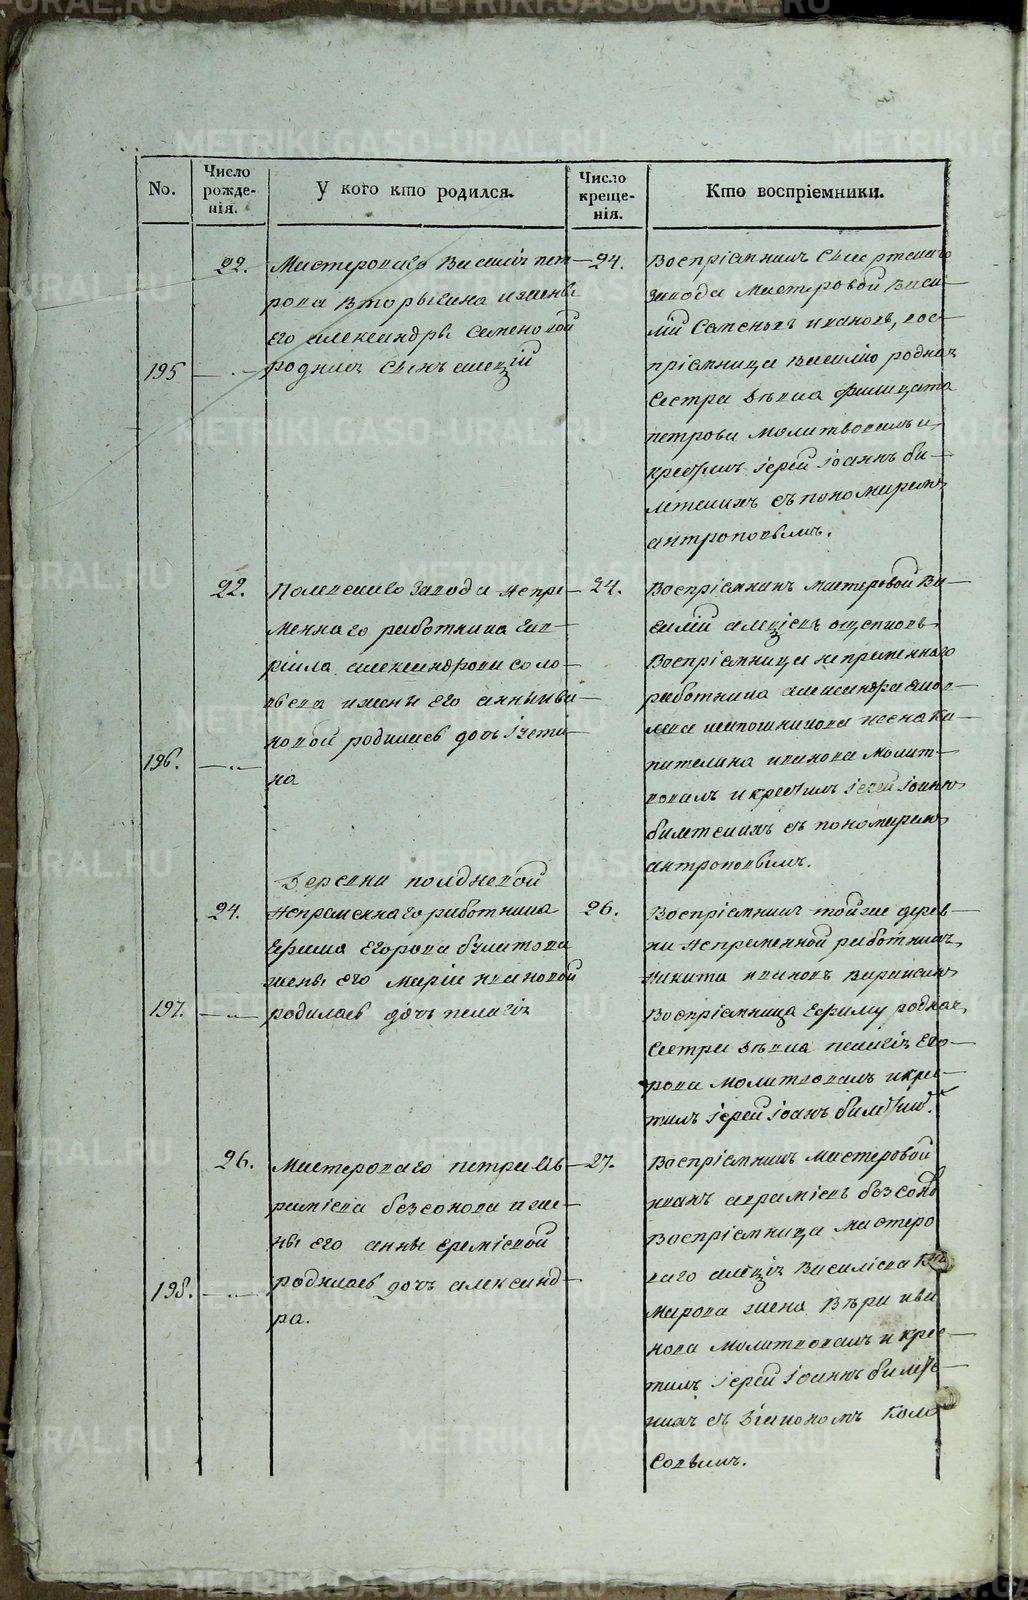 METRIKI.GASO-URAL.RU
No.
Число рожде-нія.
У кого кто родился.
Число креще-нія.
Кто воспріемники.
195
22.
Мастероваго Василія пет
рова Вторыгина и жены
его александры Семеновой
родился Сынъ алеѯій
24.
Воспріемникъ
завода Мастеровой Васи
лій Семеновъ ивановъ, вос
пріемница Василію родная
Сестра Дѣвка филицата
петрова Молитвовалъ и
крестилъ іерей іоаннъ би
летскихъ съ пономаремъ
антроповымъ.
196.
22.
Полевскаго Завода Непре
меннаго работника гав
ріила александрова соло
вьева и жены его анны ива
новой родилась дочь іусти
на
24.
Воспріемникъ мастеровой Ва
силій алеѯіевъ ощепковъ
Воспріемница непременнаго
работника александра
шапошникова
ивановa молит
вовалъ и крестилъ іерей іоаннъ
билетскихъ съ пономаремъ
антроповымъ.
197.
24.
Деревни полдневой
Непременнаго работника
Ефима Егорова булатова
жены его Маріи ивановой
родилась дочь пелагія
26.
Воспріемникъ той же дерев
ни Непременной работникъ
Никита ивановъ
Воспріемница Ефиму родная
Сестра Дѣвка пелагія Его
рова Молитвовалъ и крес
тилъ іерей іоаннъ
198.
26.
Мастероваго петра ав
раміева безсонова и же
ны его анны Ереміевой
родилась дочь александ
ра.
27.
Воспріемникъ мастеровой
иванъ авраміевъ безсоно
Воспріемница мастеро
ваго алеѯія Василіева
жена Вѣра ива
нова молитвовалъ и крес
тилъ іерей іоаннъ билетс
кихъ съ діакономъ Коло
совымъ.